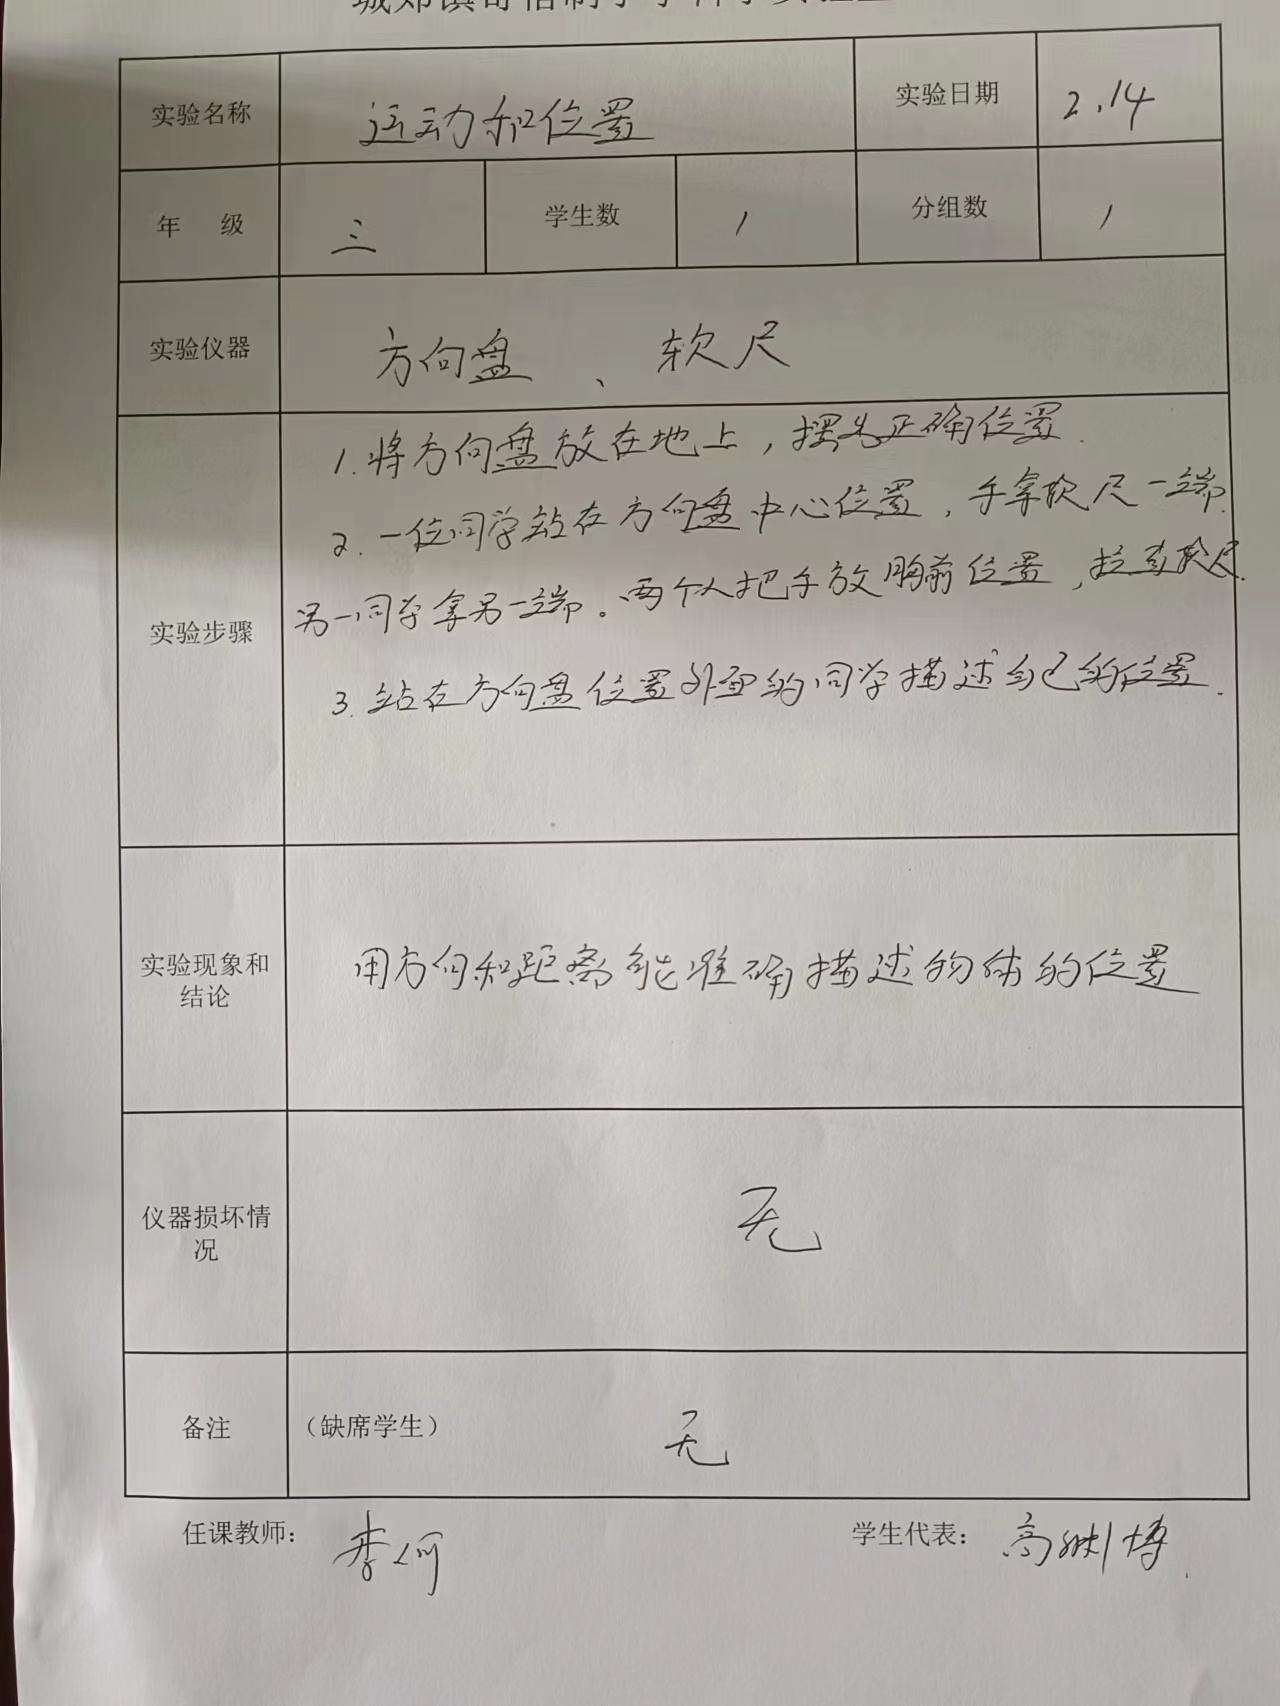 实验名称 运动和位置 实验日期 2.14
年 级 三 学生数 1 分组数 1
实验仪器 方向盘、软尺
实验步骤
1.将方向盘放在地上，摆为正确位置.
2.一位同学站在方向盘中心位置，手拿软尺一端.
另一同学拿另一端。两个人把手放胸前位置，拉直软尺.
3.站在方向盘位置外面的同学描述自己的位置.
实验现象和
结论
用方向和距离能准确描述物体的位置
仪器损坏情
况
无
备注 （缺席学生） 无
任课教师： 李何 学生代表： 高 博